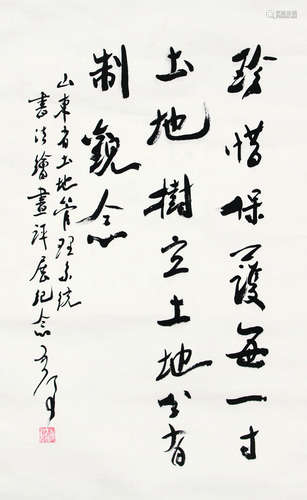 珍惜保護每一寸
土地樹立土地公有
制觀念
山東省土地管理系統
書法繪畫評展紀念